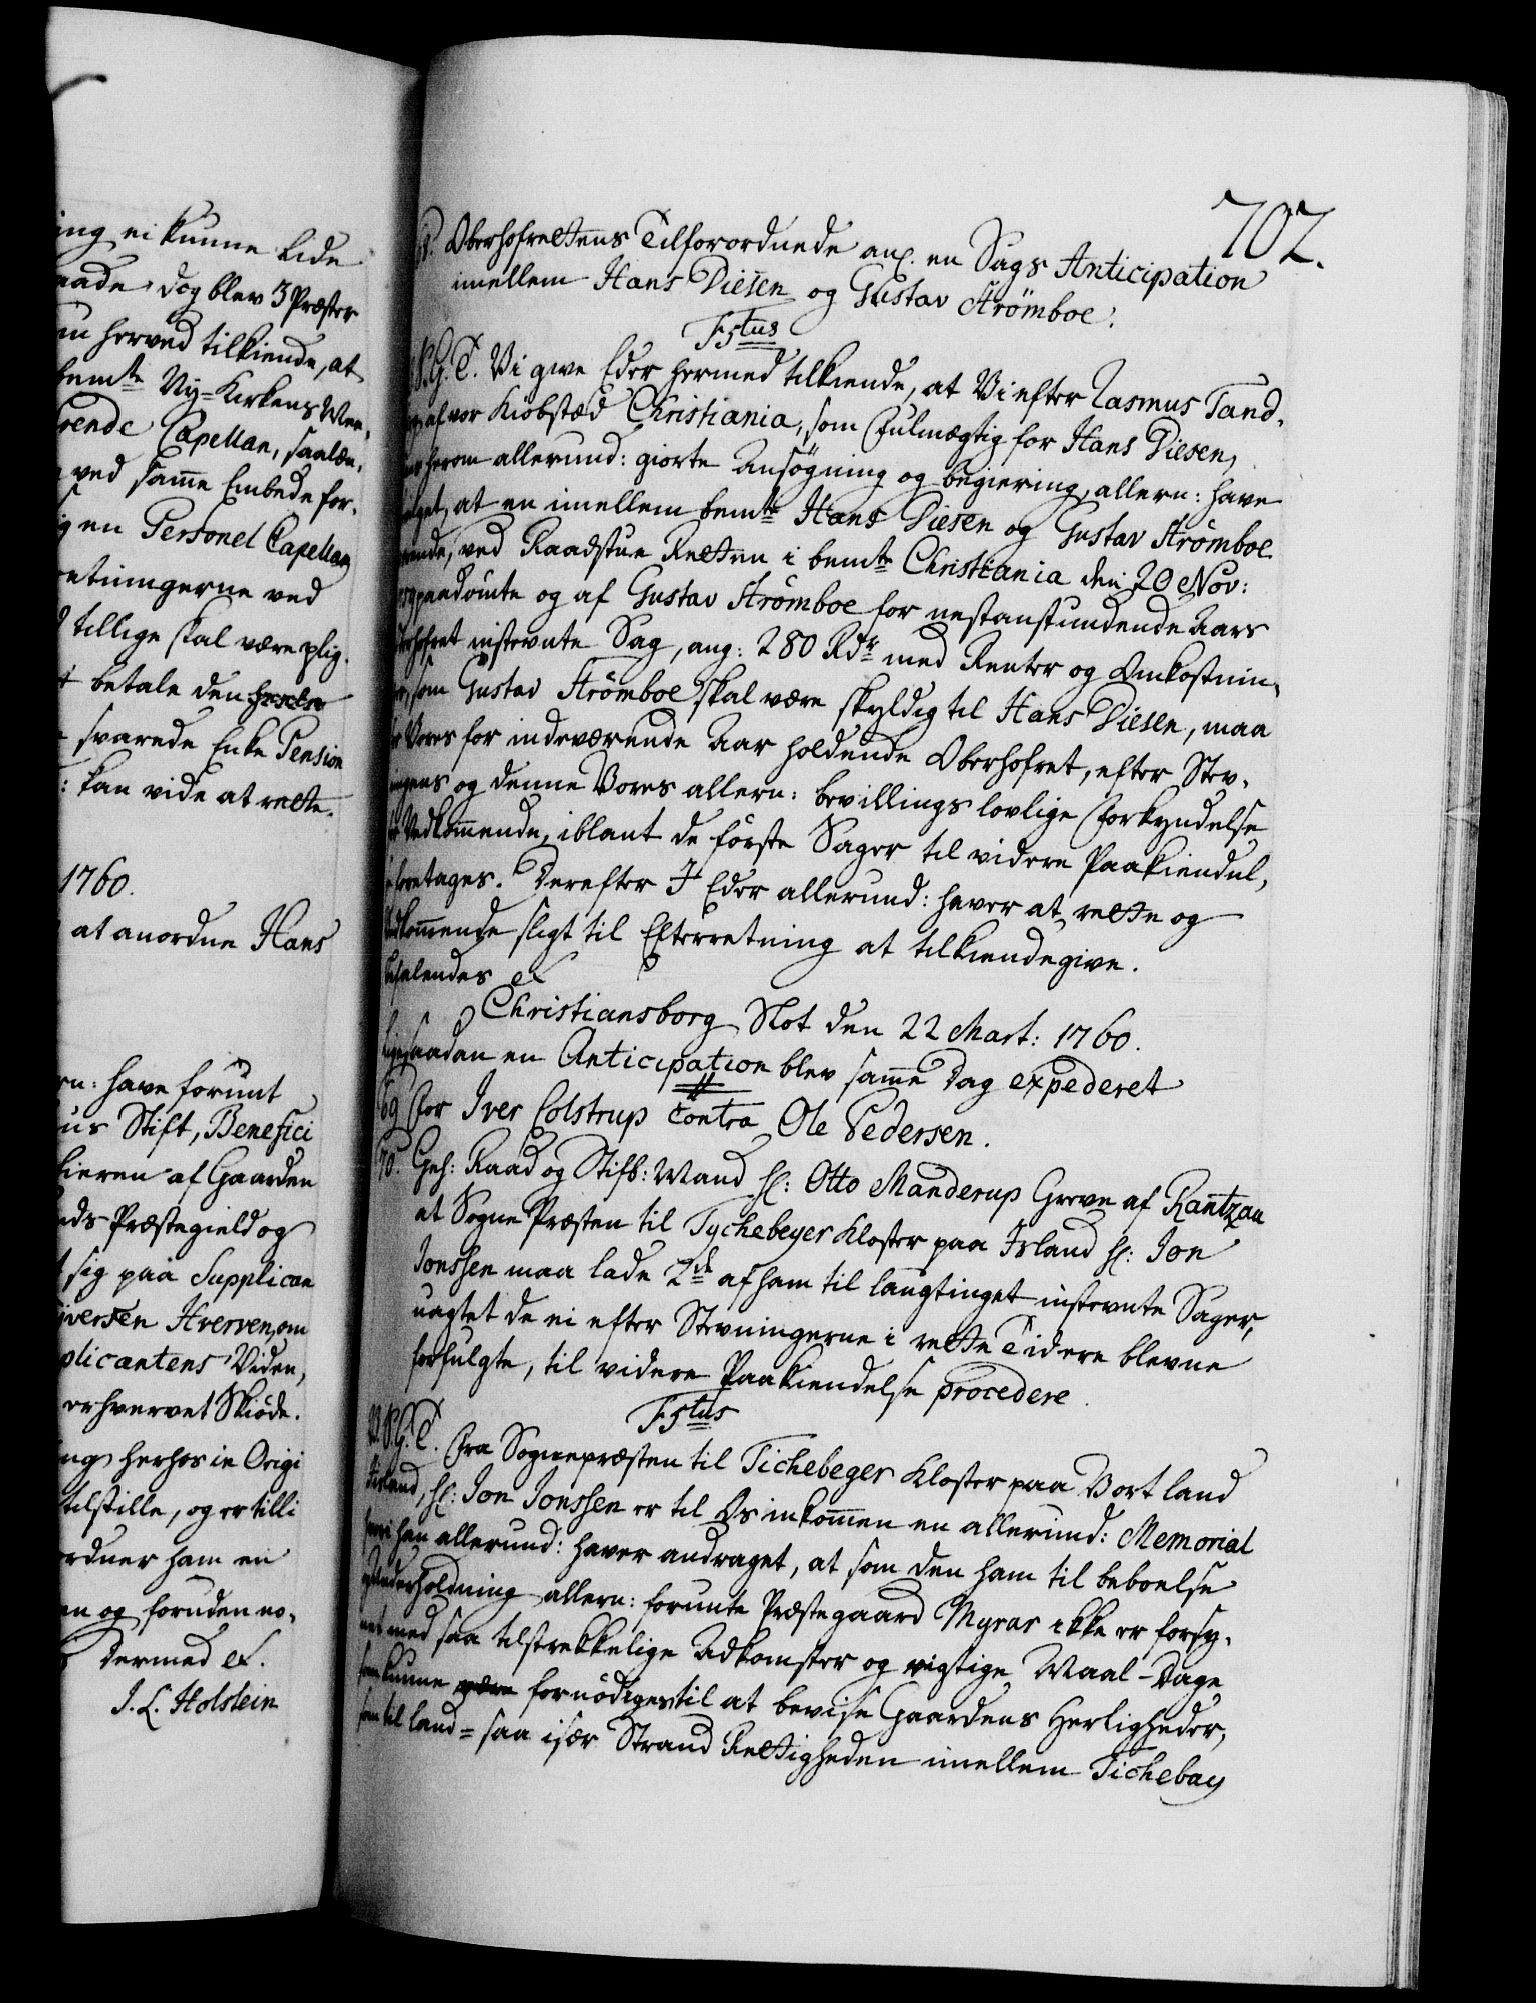 ing ei kunne lide
aade dog blev 3 Præster
herved tilkiende, at
bemte Ny=Kirkens
Capellan, saale,
ved samme Embede for,
en Personel Capellan
retningerne ved
tillige skal være plig,
betale den
svarede Enke Pension
: kan vide at rette.
1760.
at anordne Hans
rn: have forunt
us Stift, Benefici
af Gaarden
ds Præstegield og
sig paa Supplican
Iversen Hverven, om
plicantens Viden,
erhvervet Skiøde.
herhos in Origi
tilstille, og er tilli
ordner ham en
en og foruden no,
Dermed etc.
J. L. Holstein
702.
Oberhofrettens Tilforordnede ang. en Sags Anticipation
imellem Hans Diesen og Gustav Strømboe.
F5tus
V.S.G.T. Vi give Eder hermed tilkiende, at Vi efter Rasmus Tand,
af vor Kiøbstæd Christiania, som Fulmægtig for Hans Diesen,
herom allerund: giorte Ansøgning og begiering, allern: have
at en imellem bemte Hans Diesen og Gustav Strømboe
ved Raadstue Retten i bemte Christiania den 20 Nov:
paadømte og af Gustav Strømboe for nestanstundende Aars
Oberhofret instevnte Sag, ang: 280 Rdr med Renter og Omkostnin,
som Gustav Strømboe skal være skyldig til Hans Diesen, maa
Vores for indeværende Aar holdende Oberhofret, efter Stev,
ningens og denne Vores allern: bevillings lovlige Forkyndelse
Vedkommende, iblant de første Sager til videre Paakiendel,
foretages. Derefter I Eder allerund: haver at rette og
Vedkommende sligt til Efterretning at tilkiendegive.
Befalendes etc
Christiansborg Slot den 22 Mart: 1760.
Ligesaadan en Anticipation blev samme Dag expederet
69 for Iver Colstrup Contra Ole Pedersen.
70. Geh: Raad og Stifb: Mand H: Otto Manderup Greve af Rantzau
at Sogne Præsten til Tychebeyer Kloster paa Island H: Jon
Jonssen maa lade 2de af ham til laugtinget instevnte Sager,
uagtet de ei efter Stevningerne i rette Tidere blevne
forfulgte, til videre Paakiendelse procedere.
F5tus
V.S.G.T. Fra Sognepræsten til Tichebeyer Kloster paa Vort land
Island, H: Jon Jonssen er til Os inkommen en allerund: Memorial
hvori han allerund: haver andraget, at som den ham til beboelse
og Underholdning allern: forunte Præstegaard Myrar ikke er forsy,
net med saa tilstrekkelige Adkomster og vigtige Maal-Dage
som kunne være fornødiges til at bevise Gaardens Herligheder,
saa til land= saa især Strand Rettigheden imellem Tichebay